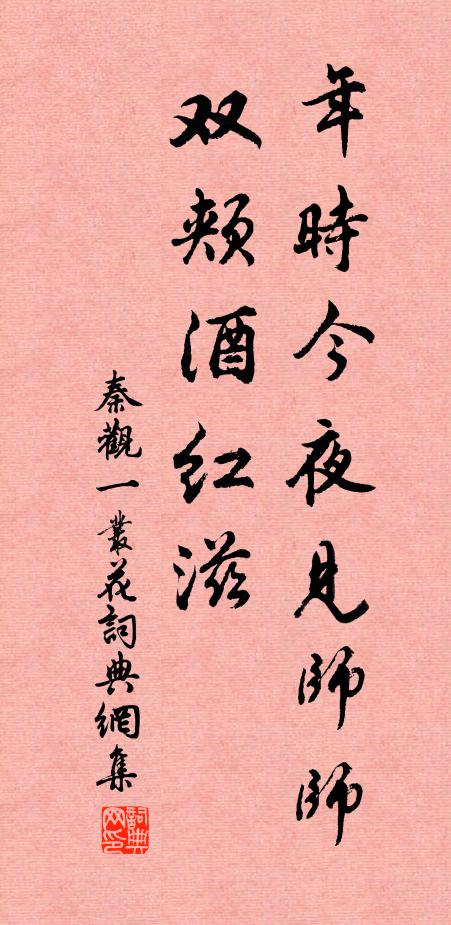 年時今夜見師師
双頰酒红滋
秦觀一叢花詞典網集
詞典网印